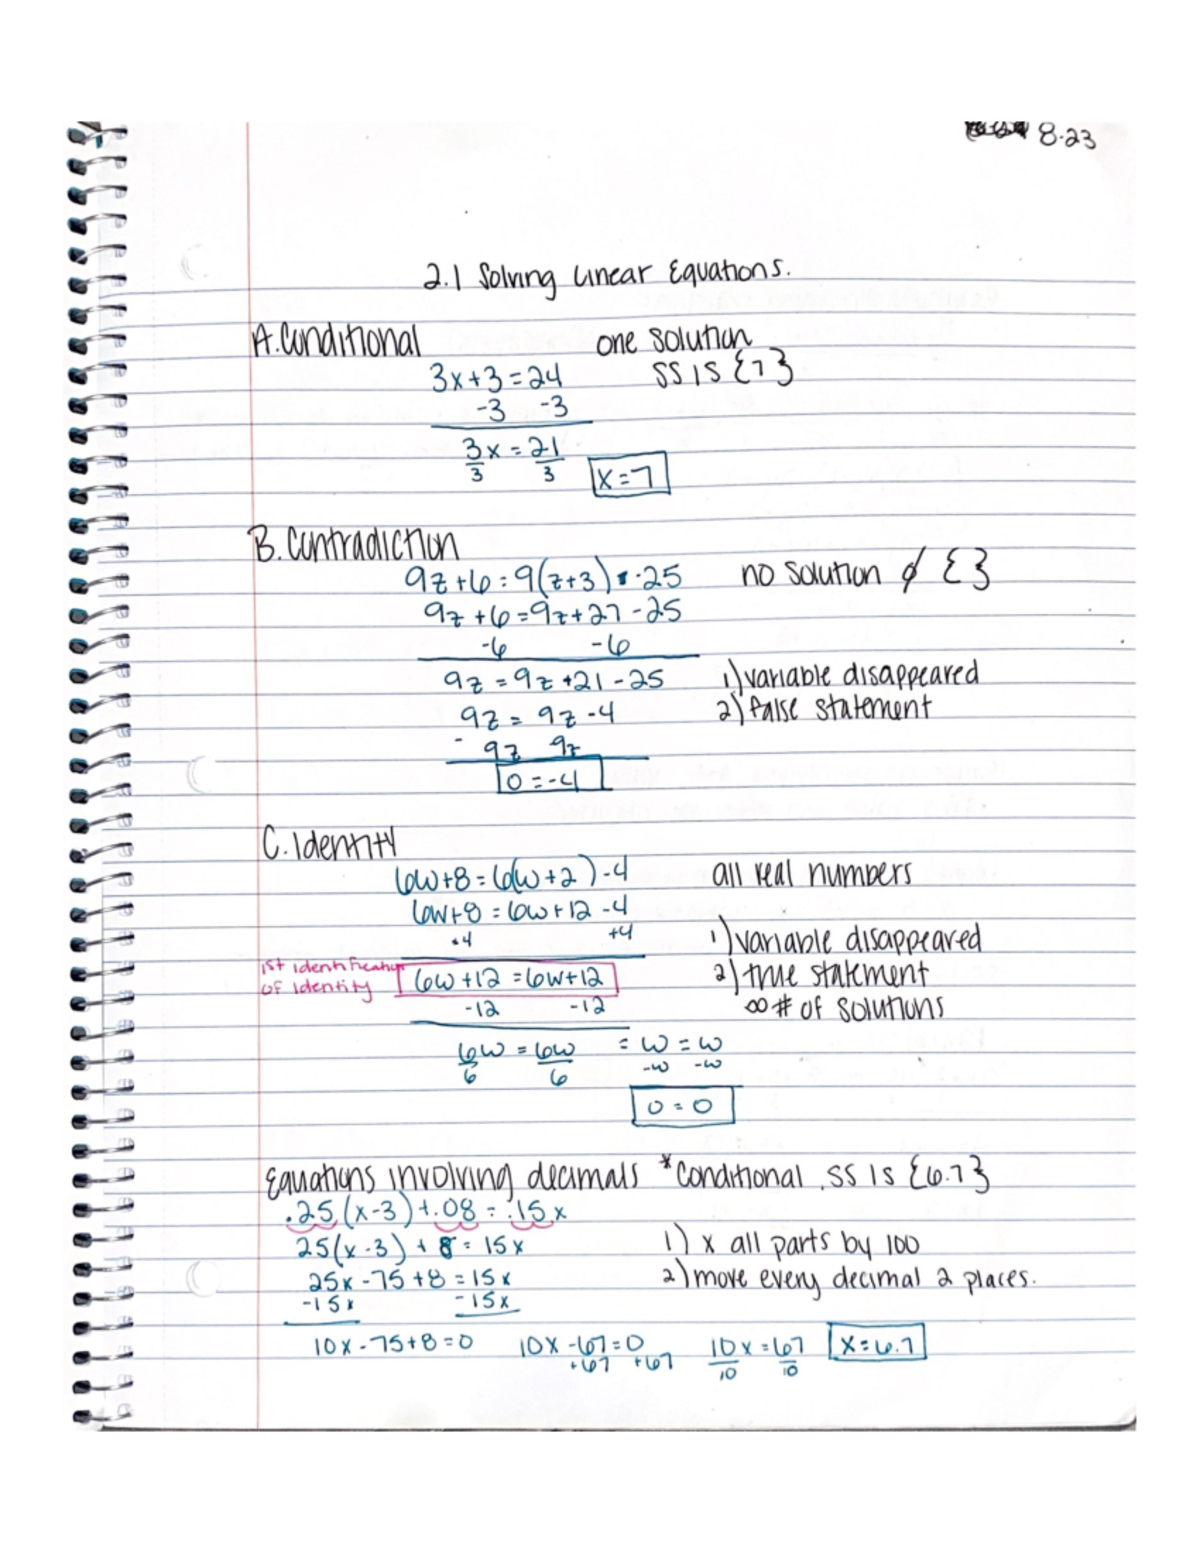 8.23
2.1 Solving Linear Equations.
A. Conditional one solution
3x+3=24 SS IS {7}
-3 -3
3x = 21
3 3 x=7
B. Contradiction
9z+6=9(z+3) -25 no solution ∅ { }
9z+6=9z+27-25
-6 -6
9z = 9z +21-25 1) variable disappeared
9z = 9z -4 2) false statement
- 9z 9z
0=-4
C. Identity
6w+8=6(w+2)-4 all real numbers
6w+8=6w+12-4
+4 +4 1) variable disappeared
1st identification of identity 6w+12=6w+12 2) true statement
-12 -12 ∞ # of solutions
6w = 6w = w = w
6 6 -w -w
0=0
Equations involving decimals *Conditional. SS IS {6.7}
.25(x-3)+.08=.15x
25(x-3)+8=15x 1) x all parts by 100
25x-75+8=15x 2) move every decimal 2 places.
-15x -15x
10x-75+8=0 10x-67=0 10x=67 x=6.7
+67 +67 10 10